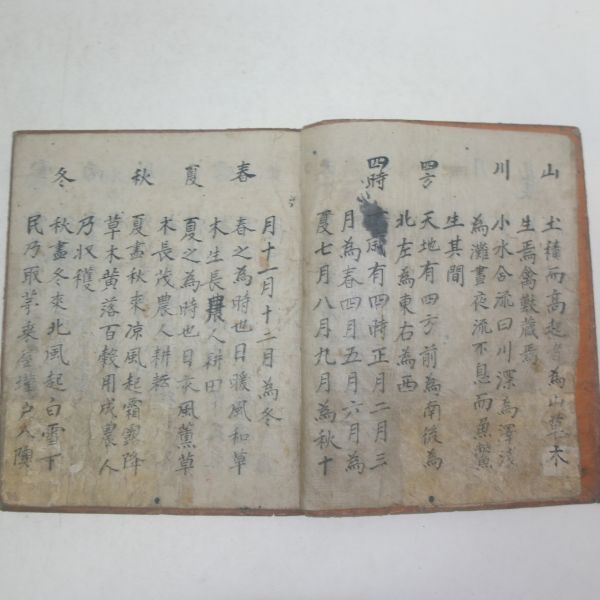 山
土積而高起者為山草木
生焉禽獸藏焉
川
小水合流曰川深為澤淺
為灘晝夜流不息而魚鱉
生其間
四方
天地有四方前為南後為
北左為東右為西
四時
有四時正月二月三
月為春四月五月六月為
夏七月八月九月為秋十
月十一月十二月為冬
春
春之為時也日暖風和草
木生長農人耕田
夏
夏之為時也日風薰草
木長茂農人耕耘
秋
夏盡秋來凉風起霜露降
草木黃落百穀用成農人
乃収穫
冬
秋盡冬來北風起白雪下
民乃取茅戶入隩